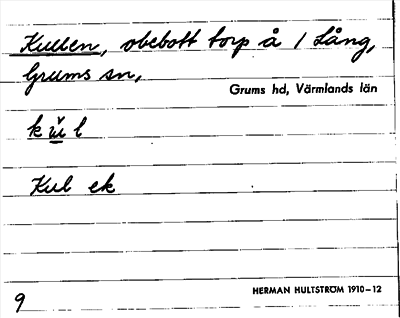 Kullen, obebott torp å 1 Lång,
Grums sn,
Grums hd, Värmlands län
k ŭ l
Kul ek
HERMAN HULTSTRÖM 1910–12
9